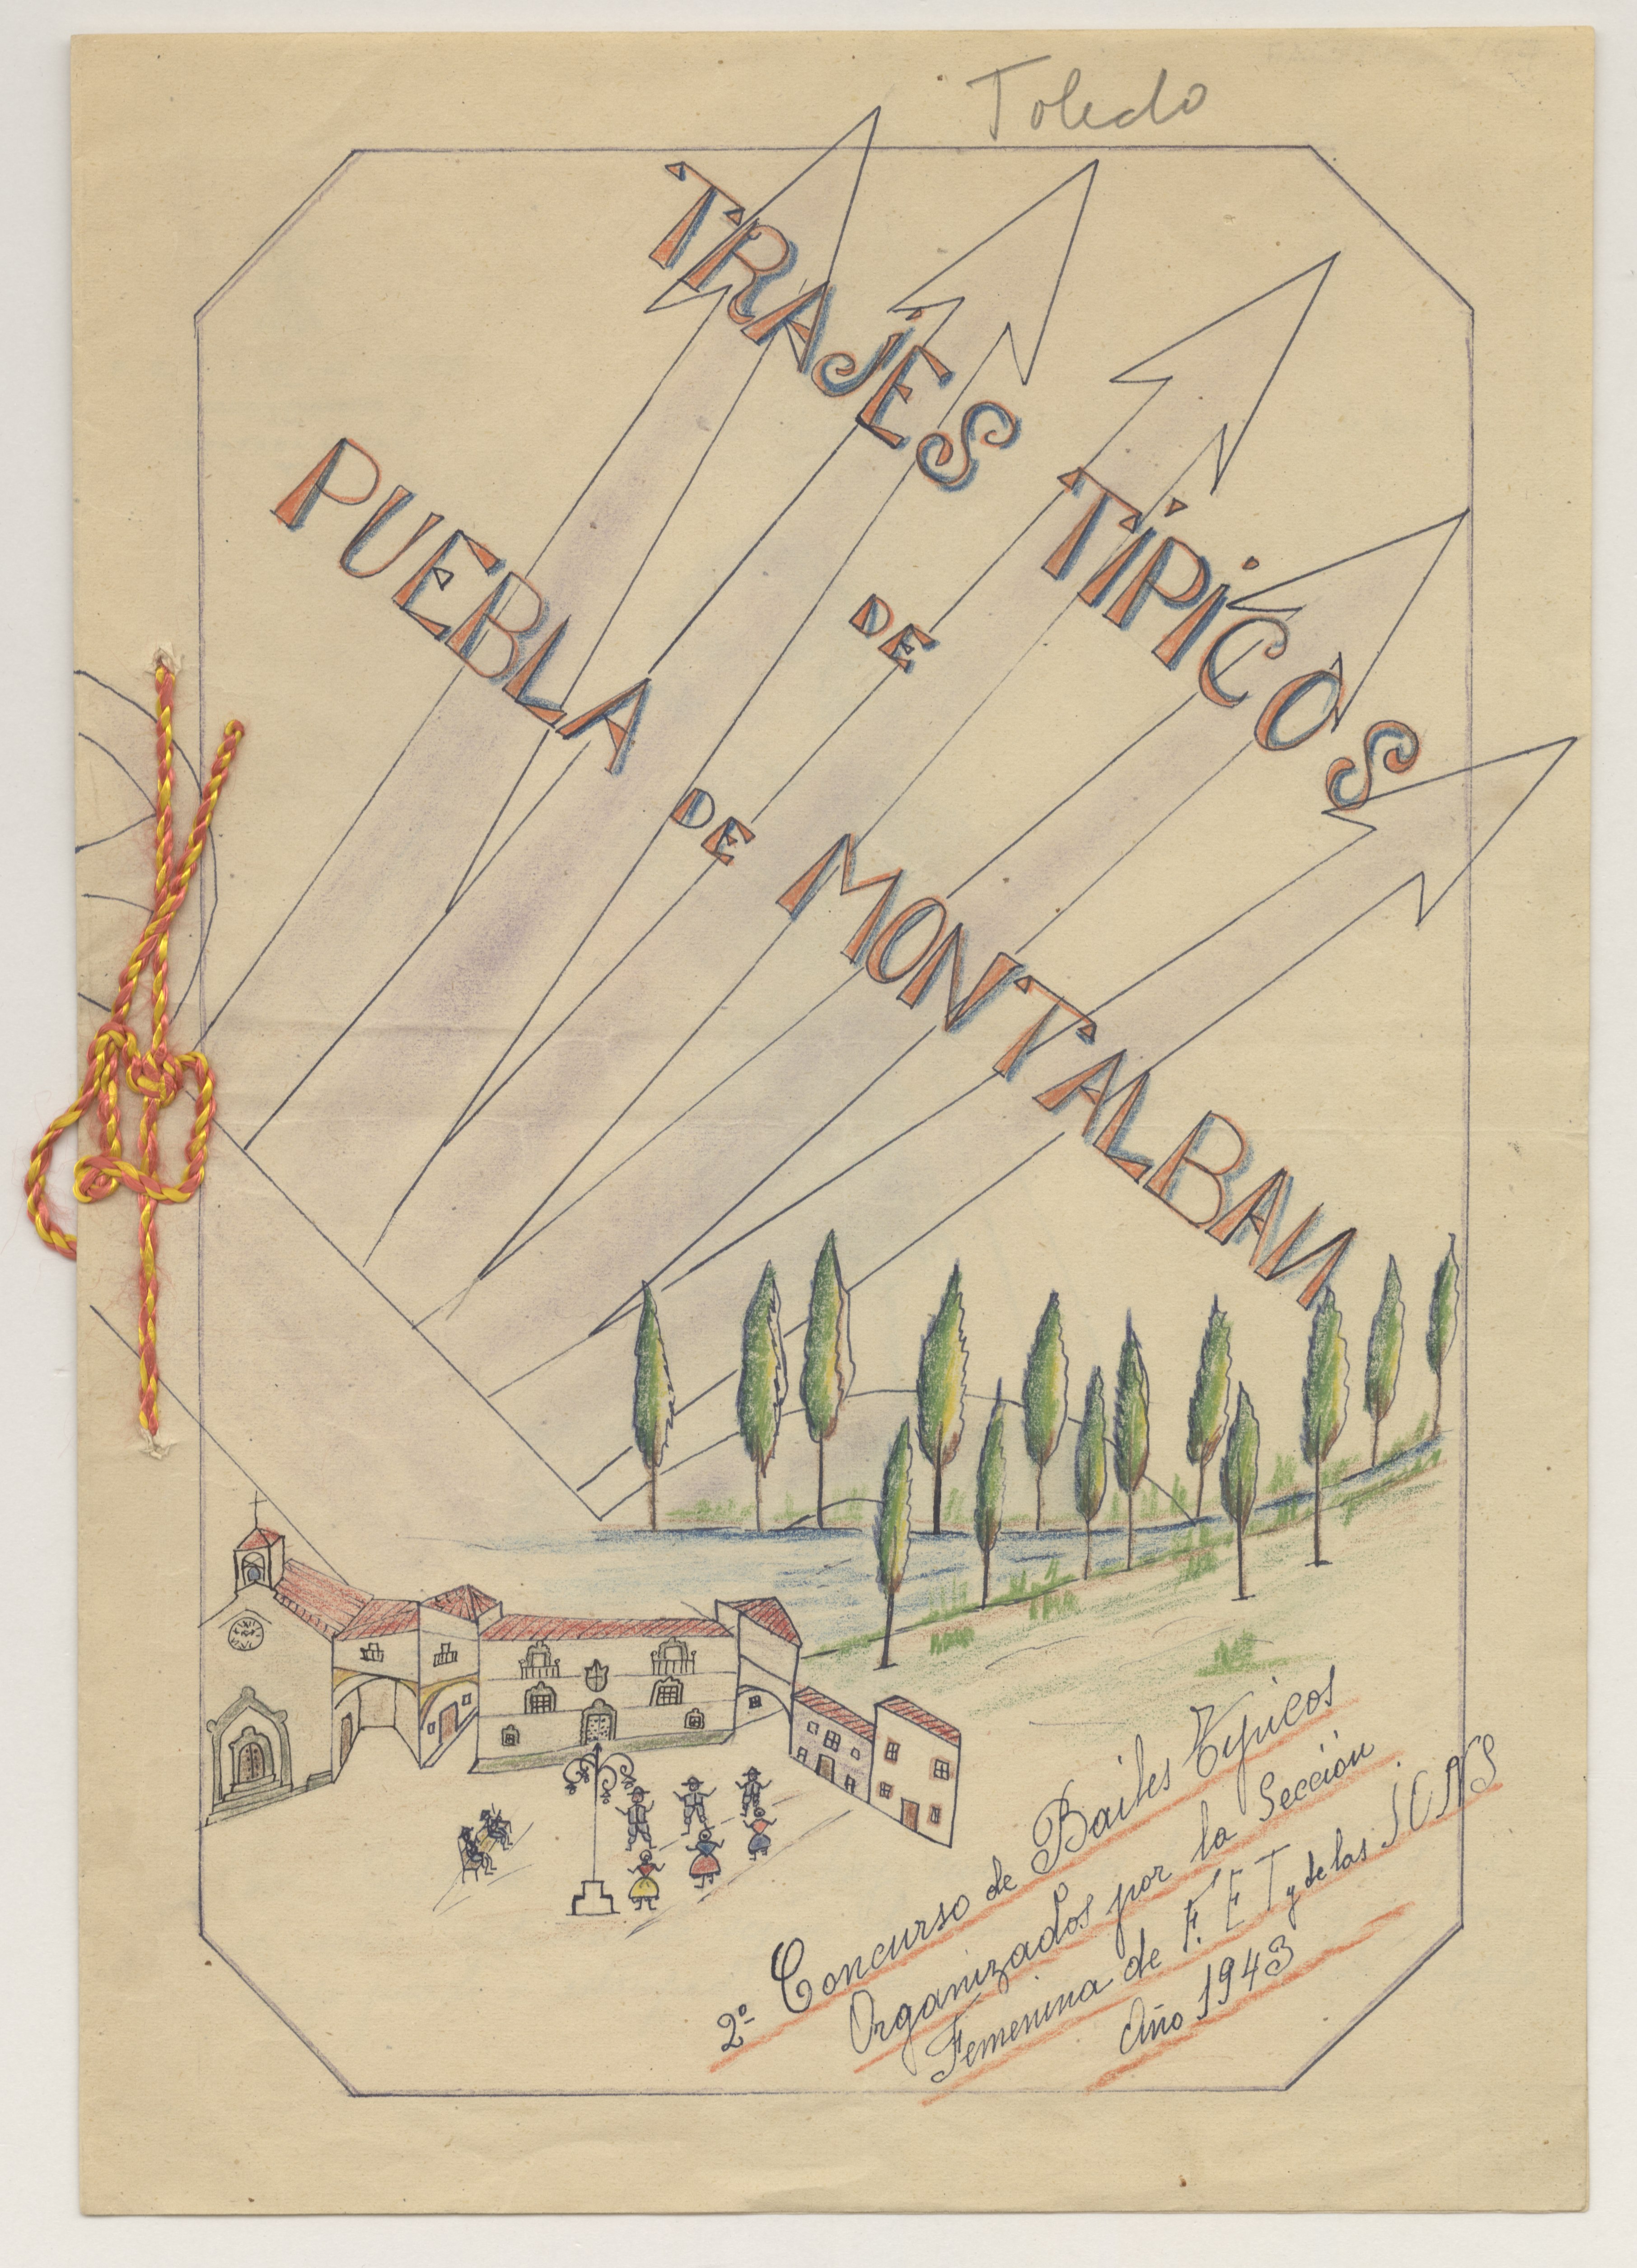 Toledo
TRAJES TIPICOS
DE
PUEBLA DE MONTALBAN
2º Concurso de Bailes Typicos
Organizados por la Sección
Femenina de F. E T y de las J O N S
Año 1943